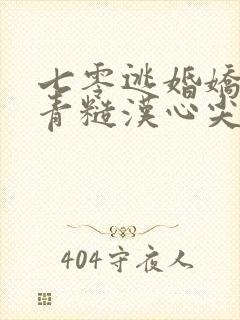 七零逃婚嬌
青糙漢心尖
404守夜人